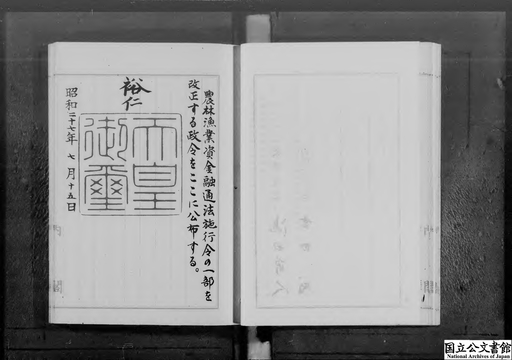 農林漁業資金融通法施行令の一部を
改正する政令をここに公布する。
裕仁
天皇
御璽
昭和二十七年七月十五日
国立公文書館
National Archives of Japan